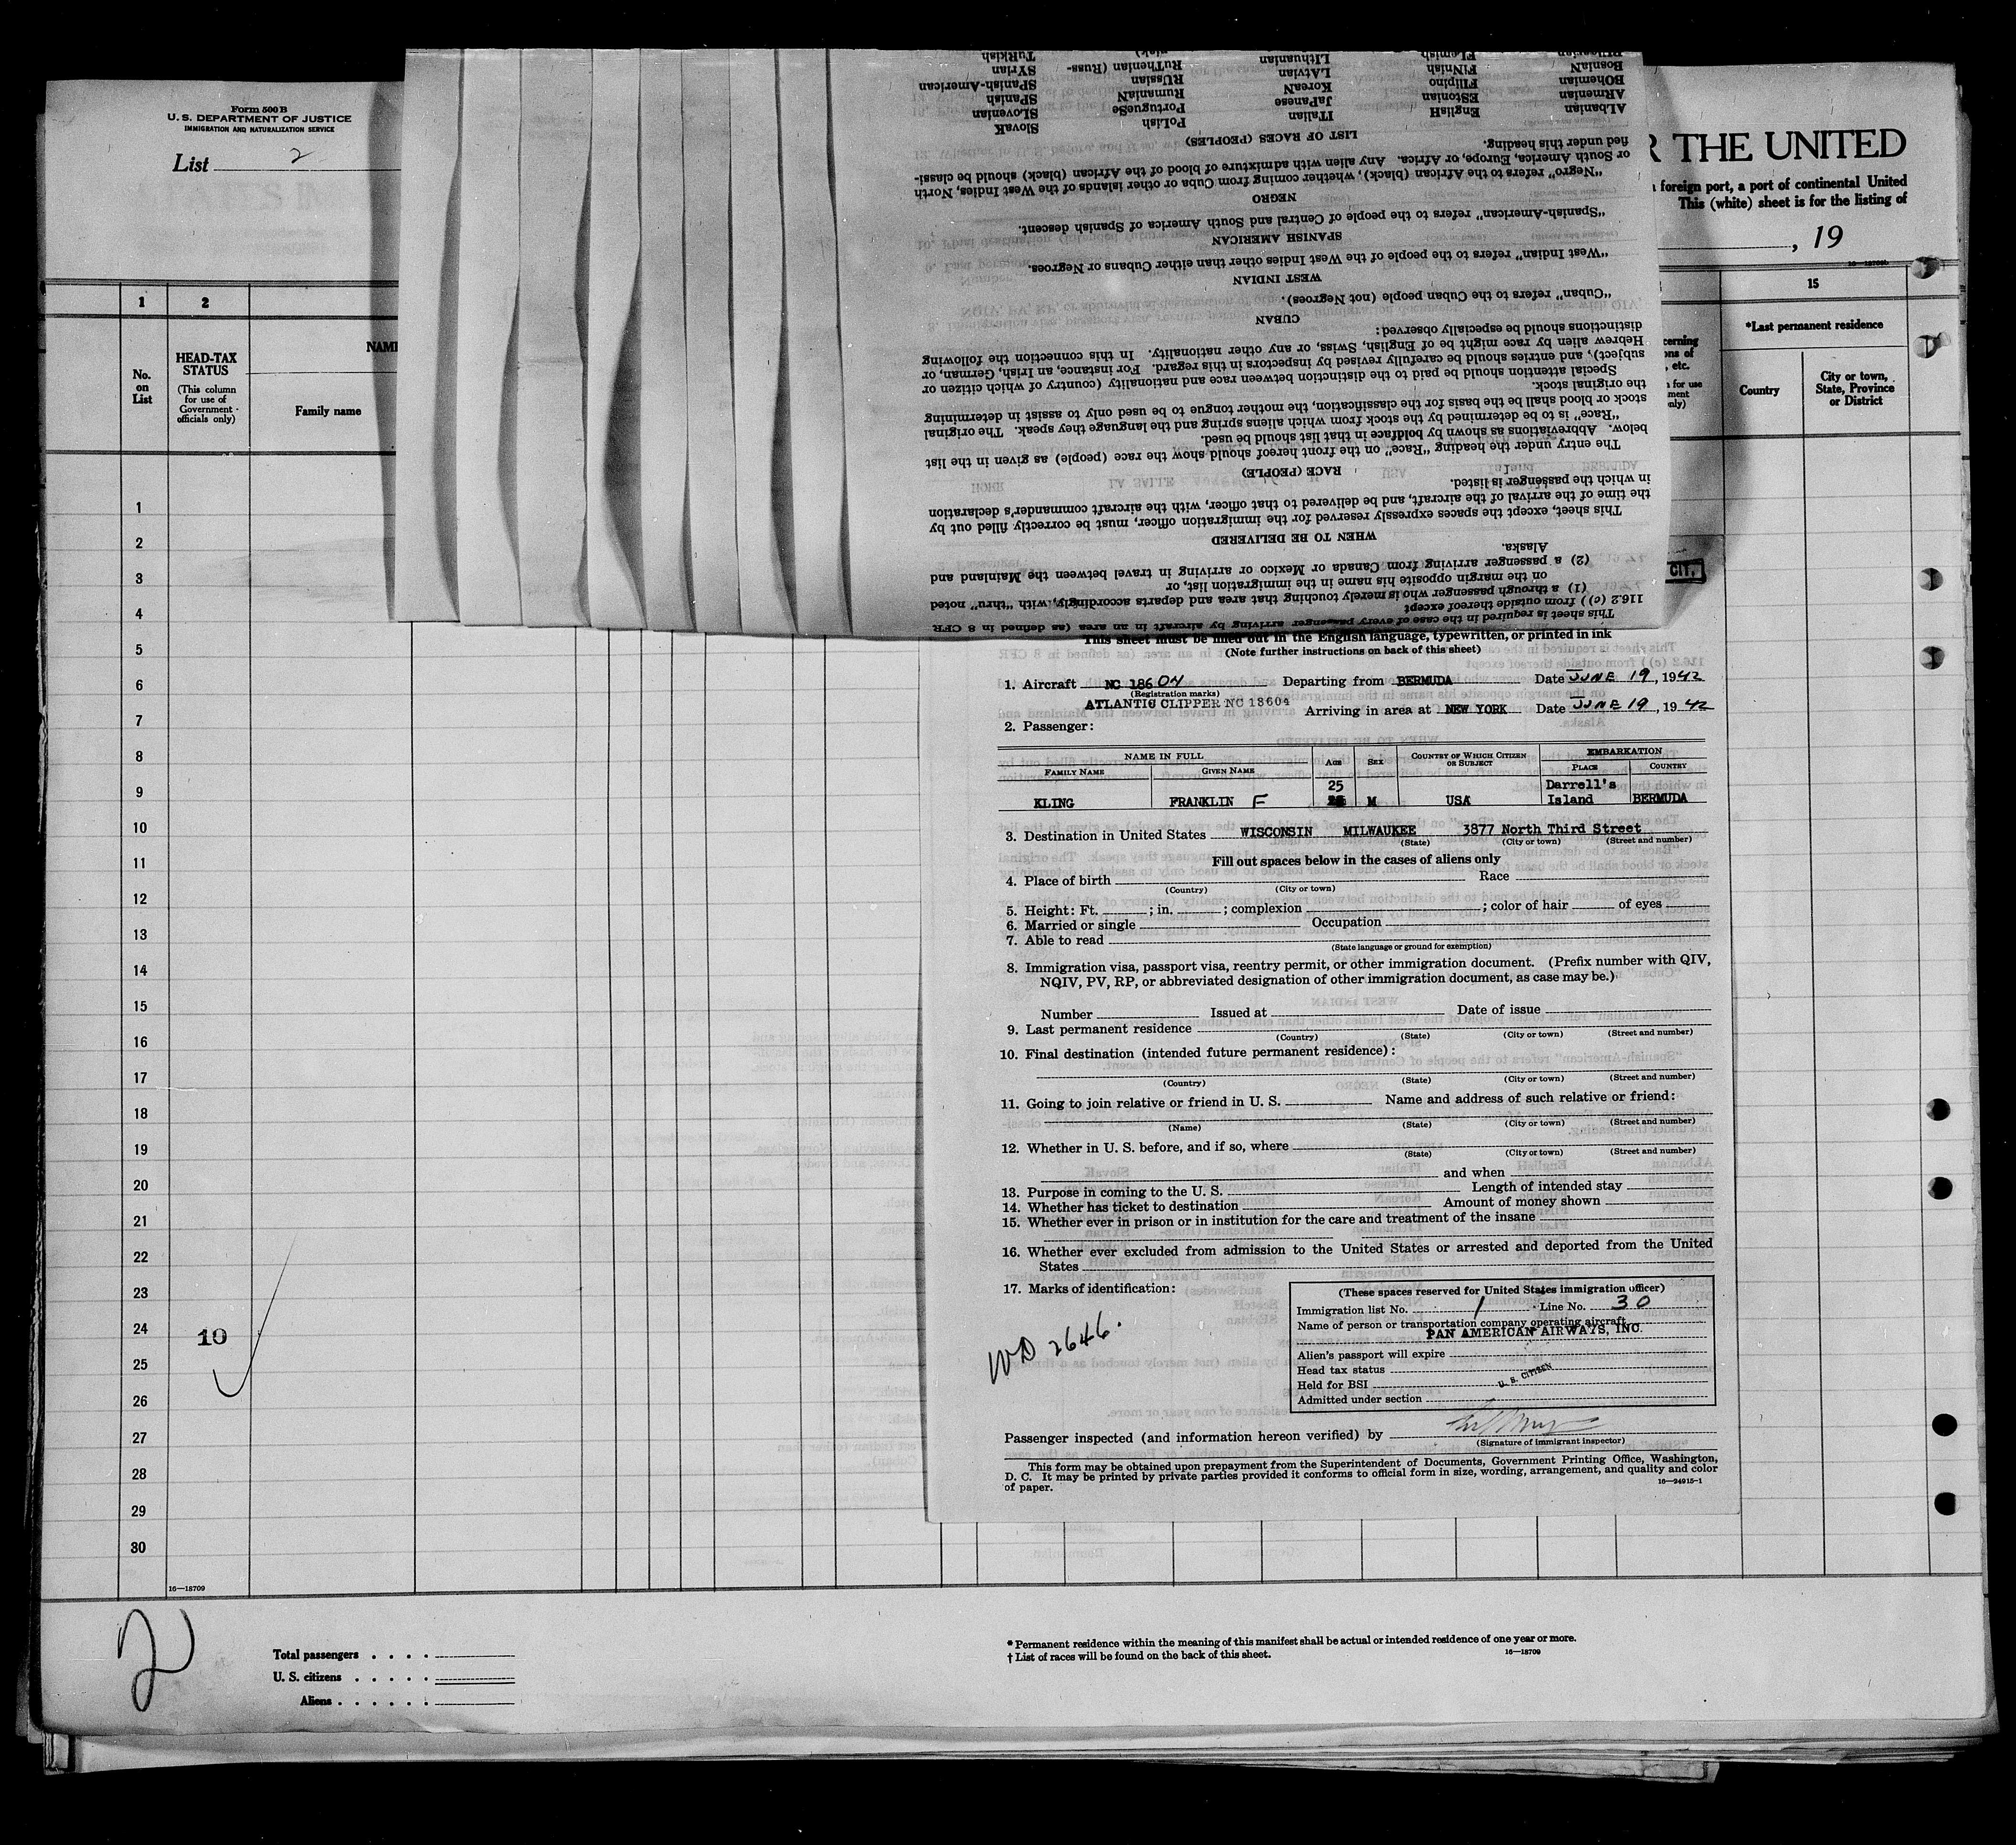 Form 500 B
U. S. DEPARTMENT OF JUSTICE
IMMIGRATION AND NATURALIZATION SERVICE
List 2
THE UNITED
foreign port, a port of continental United
This (white) sheet is for the listing of
, 19
1
2
15
No.
on
List
HEAD-TAX
STATUS
(This column
for use of
Government
officials only)
Family name
*Last permanent residence
Country
City or town,
State, Province
or District
1
2
3
4
5
6
7
8
9
10
11
12
13
14
15
16
17
18
19
20
21
22
23
24
25
26
27
28
29
30
10
16—18709
2
Total passengers
U. S. citizens
Aliens
* Permanent residence within the meaning of this manifest shall be actual or intended residence of one year or more.
† List of races will be found on the back of this sheet.
16—18709
CIT.
This sheet is required in the case of every passenger arriving by aircraft in an area (as defined in 8 CFR
116.2 (c) ) from outside thereof except
(1) a through passenger who is merely touching that area and departs accordingly, with "thru" noted
on the margin opposite his name in the immigration list, or
(2) a passenger arriving from Canada or Mexico or arriving in travel between the Mainland and
Alaska.
WHEN TO BE DELIVERED
This sheet, except the spaces expressly reserved for the immigration officer, must be correctly filled out by
the time of the arrival of the aircraft, and be delivered to that officer, with the aircraft commander's declaration
in which the passenger is listed.
RACE (PEOPLE)
The entry under the heading "Race" on the front hereof should show the race (people) as given in the list
below. Abbreviations as shown by boldface in that list should be used.
"Race" is to be determined by the stock from which aliens spring and the language they speak. The original
stock or blood shall be the basis for the classification, the mother tongue to be used only to assist in determining
the original stock.
Special attention should be paid to the distinction between race and nationality (country of which citizen or
subject), and entries should be carefully revised by inspectors in this regard. For instance, an Irish, German, or
Hebrew alien by race might be of English, Swiss, or any other nationality. In this connection the following
distinctions should be especially observed:
CUBAN
"Cuban" refers to the Cuban people (not Negroes).
WEST INDIAN
"West Indian" refers to the people of the West Indies other than either Cubans or Negroes.
SPANISH AMERICAN
"Spanish-American" refers to the people of Central and South America of Spanish descent.
NEGRO
"Negro" refers to the African (black), whether coming from Cuba or other islands of the West Indies, North
or South America, Europe, or Africa. Any alien with admixture of blood of the African (black) should be classi-
fied under this heading.
LIST OF RACES (PEOPLES)
ALbanian EnglisH ITalian PoLish SlovaK
ARmenian EStonian JaPanese PortugueSe SLovenian
BOhemian FIlipino KoreaN RumaniaN SPanish
BosniaN FINnish LAtvian RUssian SPanish-American
FLemish LIthuanian RuThenian (Russ- SYrian
TuRkish
This sheet must be filled out in the English language, typewritten, or printed in ink
(Note further instructions on back of this sheet)
1. Aircraft NC 18604 Departing from BERMUDA Date JUNE 19, 1942
(Registration marks)
ATLANTIC CLIPPER NC 18604 Arriving in area at NEW YORK Date JUNE 19, 1942
2. Passenger:
NAME IN FULL
AGE
SEX
COUNTRY OF WHICH CITIZEN
OR SUBJECT
EMBARKATION
FAMILY NAME GIVEN NAME PLACE COUNTRY
25 Darrell's
KLING FRANKLIN F M USA Island BERMUDA
3. Destination in United States WISCONSIN MILWAUKEE 3877 North Third Street
(State) (City or town) (Street and number)
Fill out spaces below in the cases of aliens only
4. Place of birth Race
(Country) (City or town)
5. Height: Ft. ; in. ; complexion ; color of hair of eyes
6. Married or single Occupation
7. Able to read
(State language or ground for exemption)
8. Immigration visa, passport visa, reentry permit, or other immigration document. (Prefix number with QIV,
NQIV, PV, RP, or abbreviated designation of other immigration document, as case may be.)
Number Issued at Date of issue
9. Last permanent residence
(Country) (State) (City or town) (Street and number)
10. Final destination (intended future permanent residence):
(Country) (State) (City or town) (Street and number)
11. Going to join relative or friend in U. S. Name and address of such relative or friend:
(Name) (State) (City or town) (Street and number)
12. Whether in U. S. before, and if so, where
(State) (City or town) (Street and number)
and when
13. Purpose in coming to the U. S. Length of intended stay
14. Whether has ticket to destination Amount of money shown
15. Whether ever in prison or in institution for the care and treatment of the insane
16. Whether ever excluded from admission to the United States or arrested and deported from the United
States
17. Marks of identification:
WD 2646.
(These spaces reserved for United States immigration officer)
Immigration list No. 1 Line No. 30
Name of person or transportation company operating aircraft
PAN AMERICAN AIRWAYS, INC.
Alien's passport will expire
Head tax status
U. S. CITIZEN
Held for BSI
Admitted under section
Passenger inspected (and information hereon verified) by
(Signature of immigrant inspector)
This form may be obtained upon prepayment from the Superintendent of Documents, Government Printing Office, Washington,
D. C. It may be printed by private parties provided it conforms to official form in size, wording, arrangement, and quality and color
of paper.
16—24915-1